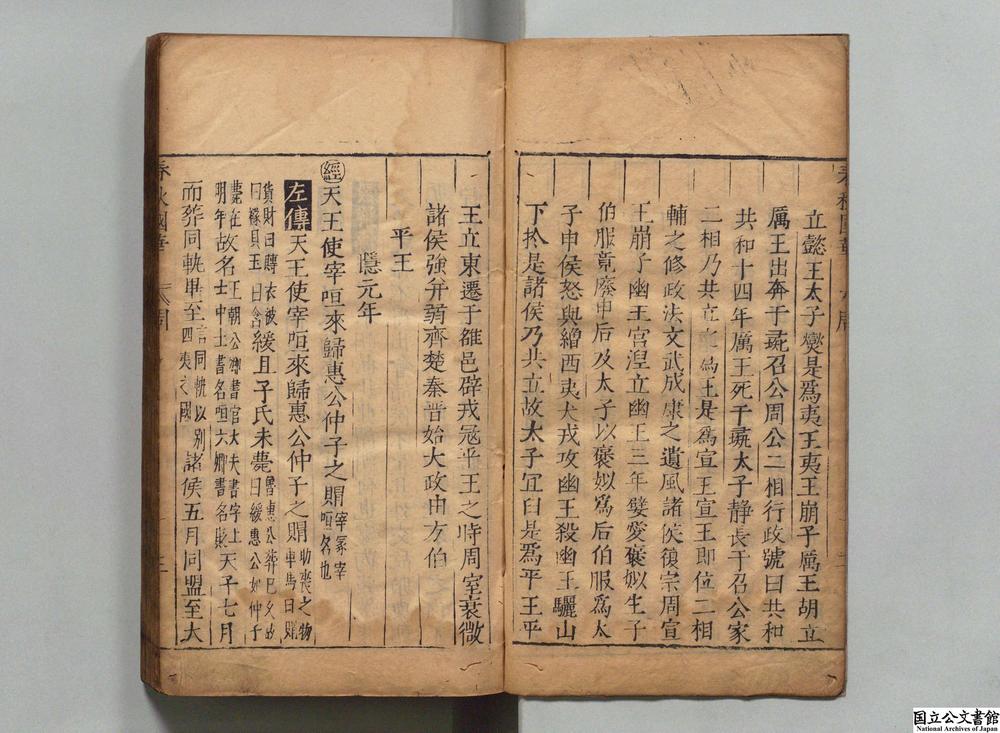 立懿王太子燮是爲夷王夷王崩子厲王胡立
厲王出奔于彘召公周公二相行政號曰共和
共和十四年厲王死于彘太子靜長于召公家
二相乃共立爲王是爲宣王宣王即位二相
輔之修政法文武成康之遺風諸侯復宗周宣
王崩子幽王宮湼立幽王三年嬖愛褒姒生子
伯服竟廢申后及太子以褒姒爲后伯服爲太
子申侯怒與繒西夷犬戎攻幽王殺幽王驪山
下於是諸侯乃共立故太子宜臼是爲平王平
王立東遷于雒邑辟戎寇平王之時周室衰微
諸侯強弁弱齊楚秦晉始大政由方伯
平王
隱元年
經天王使宰咺來歸惠公仲子之賵宰冢宰咺名也
左傳天王使宰咺來歸惠公仲子之賵助喪之物車馬曰賵
貨財曰賻衣被曰襚貝玉曰含緩且子氏未薨魯惠公葬已久故曰緩惠公如仲子
薨在明年故名王朝公卿書官大夫書字上士中士書名咺六卿書名貶天子七月
而葬同軌畢至言同軌以别四夷之國諸侯五月同盟至大
春秋國華
周
三
国立公文書館
National Archives of Japan